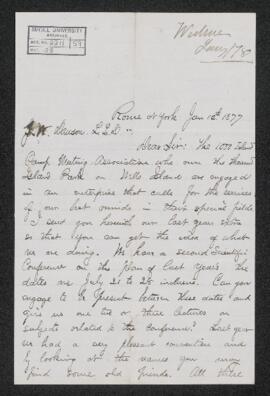 McGILL UNIVERSITY
ARCHIVES
ACC. NO. 2211 59
REF. 28
Rome N York Jan 12th 1877
J. W. Dawson L.L.D.
Dear Sir: The 1000 Island
Camp Meeting Association who own the Thousand
Island Park on Wells Island are engaged
in an enterprise that calls for the services
of our best minds in their special fields
I send you herewith our last years
so that you can get the idea of what
we are doing. We have a second Scientific
Conference on the plan of last year's the
dates are July 21 to 25 inclusive. Can you
engage to be present between these dates and
give us one two or three lectures on
subjects related to the conference? Last year
we had a very pleasant convention and
by looking at the names you may
find some old friends. All